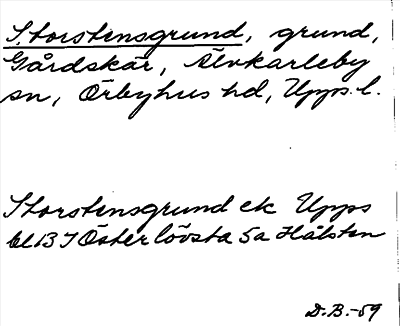 Storstensgrund, grund,
Gårdskär, Älvkarleby
sn, Örbyhus hd, Upps. l.
Storstensgrund ek Upps
bl 13 J Österlövsta 5a Hålsten
D.B.-59